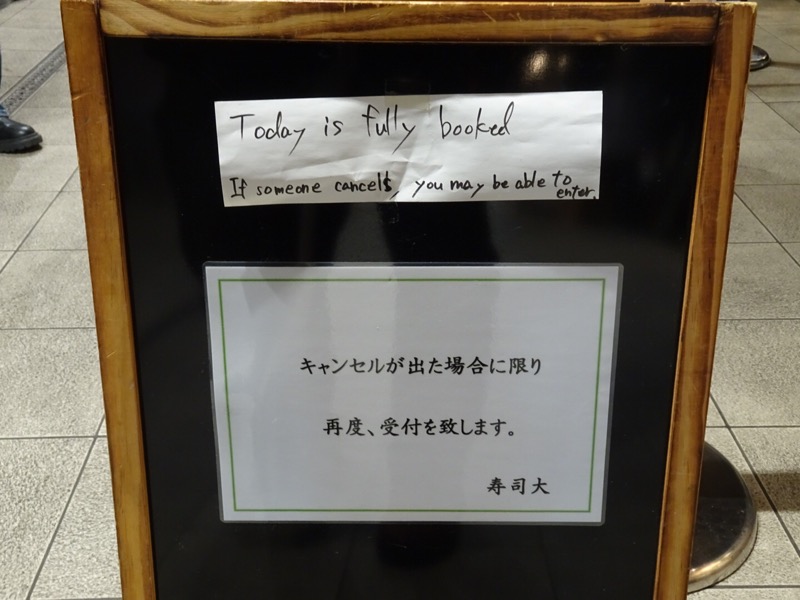 Today is fully booked
If someone cancels, you may be able to enter.
キャンセルが出た場合に限り
再度、受付を致します。
寿司大